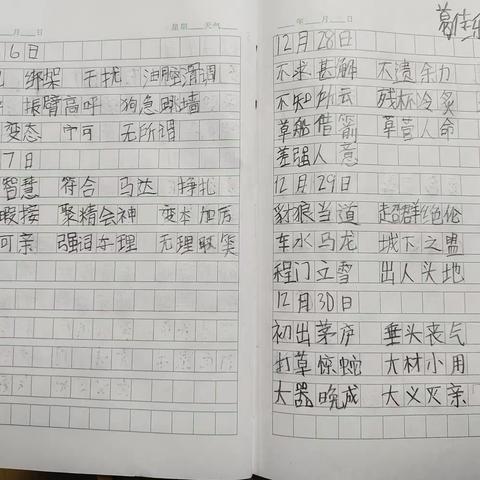 星期 天气
月 日
6日
绑架 干扰 油腔滑调
振臂高呼 狗急跳墙
变态 宁可 无所谓
7日
智慧 符合 马达 挣扎
暇接 聚精会神 变本加厉
可亲 强词夺理 无理取笑
年 月 日
12月28日
不求甚解 不溃余力
不知所云 残杯冷炙
草船借箭 草菅人命
差强人意
12月29日
豺狼当道 超群绝伦
车水马龙 城下之盟
程门立雪 出人头地
12月30日
初出茅庐 垂头丧气
打草惊蛇 大材小用
大器晚成 大义灭亲